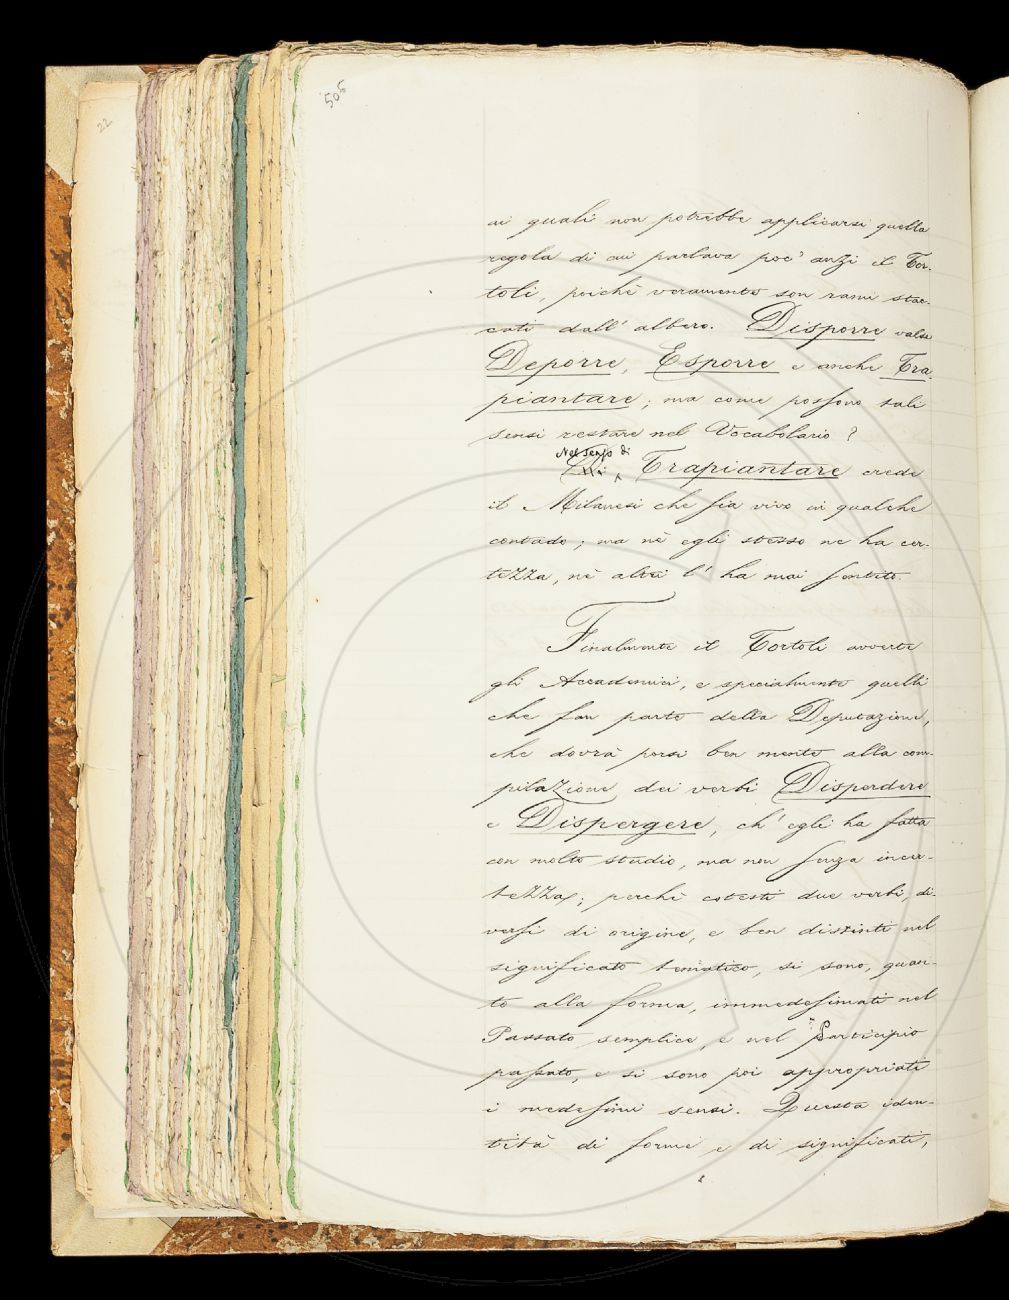 22
506
ai quali non potrebbe applicarsi quella
regola di cui parlava poc' anzi il Tor-
toli, poichè veramente son rami stac-
cati dall' albero. Disporre valse
Deporre, Esporre e anche Tra-
piantare; ma come possono tali
sensi restare nel Vocabolario?
Nel senso di
Trapiantare crede
il Milanesi che sia vivo in qualche
contado; ma nè egli stesso ne ha cer-
tezza, nè altri l' ha mai sentito.
Finalmente il Tortoli avverte
gli Accademici, e specialmente quelli
che fan parte della Deputazione,
che dovrà porsi ben mente alla com-
pilazione dei verbi Disperdere
e Dispergere, ch' egli ha fatta
con molto studio, ma non senza incer-
tezza; perchè cotesti due verbi, di-
versi di origine, e ben distinti nel
significato tematico, si sono, quan-
to alla forma, immedesimati nel
Passato semplice, e nel Participio
passato, e si sono poi appropriati
i medesimi sensi. Questa iden-
tità di forme e di significati,